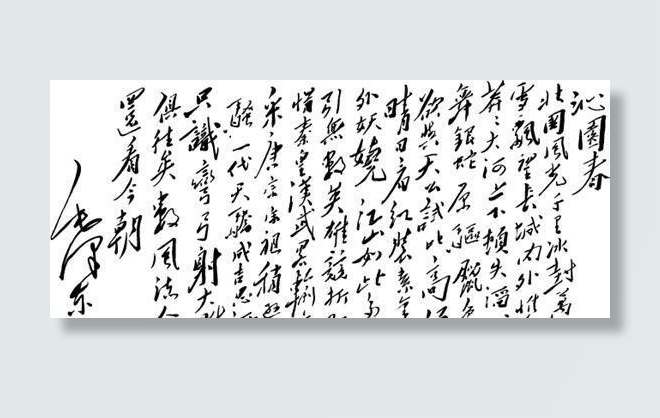 沁園春
北國風光千里冰封萬
雪飄望長城内外惟
莽〻大河上下頓失滔
舞銀蛇原驅臘
欲與天公試比高
晴日看紅裝素
外妖嬈江山如此多
引無數英雄競折
惜秦皇漢武略輸
采唐宗宋祖稍遜
騷一代天驕成吉思
只識彎弓射大
俱往矣數風流人
還看今朝
毛澤東